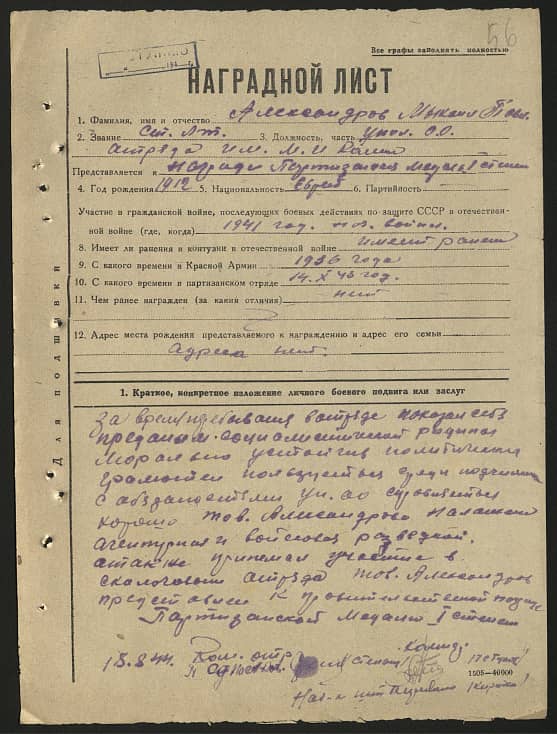 56
Все графы заполнять полностью
НАГРАДНОЙ ЛИСТ
1. Фамилия, имя и отчество Александров Михаил Павл.
2. Звание Ст. Лт. 3. Должность, часть Упол. О.О.
отряда им. М. И. Калин
Представляется к награде Партизанская медаль I степени
4. Год рождения 1912 5. Национальность еврей 6. Партийность
Участие в гражданской войне, последующих боевых действиях по защите СССР в отечествен-
ной войне (где, когда) 1941 год.
8. Имеет ли ранения и контузии в отечественной войне имеет ранен
9. С какого времени в Красной Армии 1936 года
10. С какого времени в партизанском отряде 14.X 43 год.
11. Чем ранее награжден (за какия отличия) нет
12. Адрес места рождения представляемого к награждению и адрес его семьи
Адреса нет
Для подшивки
1. Краткое, конкретное изложение личного боевого подвига или заслуг
За время пребывания в отряде показал себя
преданным социалистической родины
Морально устойчив политически
грамотен пользуется среди подчинен
с обязаностями уп. оо справляется
хорошо тов. Александров налажена
агентурная и войсковая разведкой.
также принимал участие в
отряда тов. Александров
представлен к правительственной
Партизанской Медали I степени
Ком. отр.
1505-40000